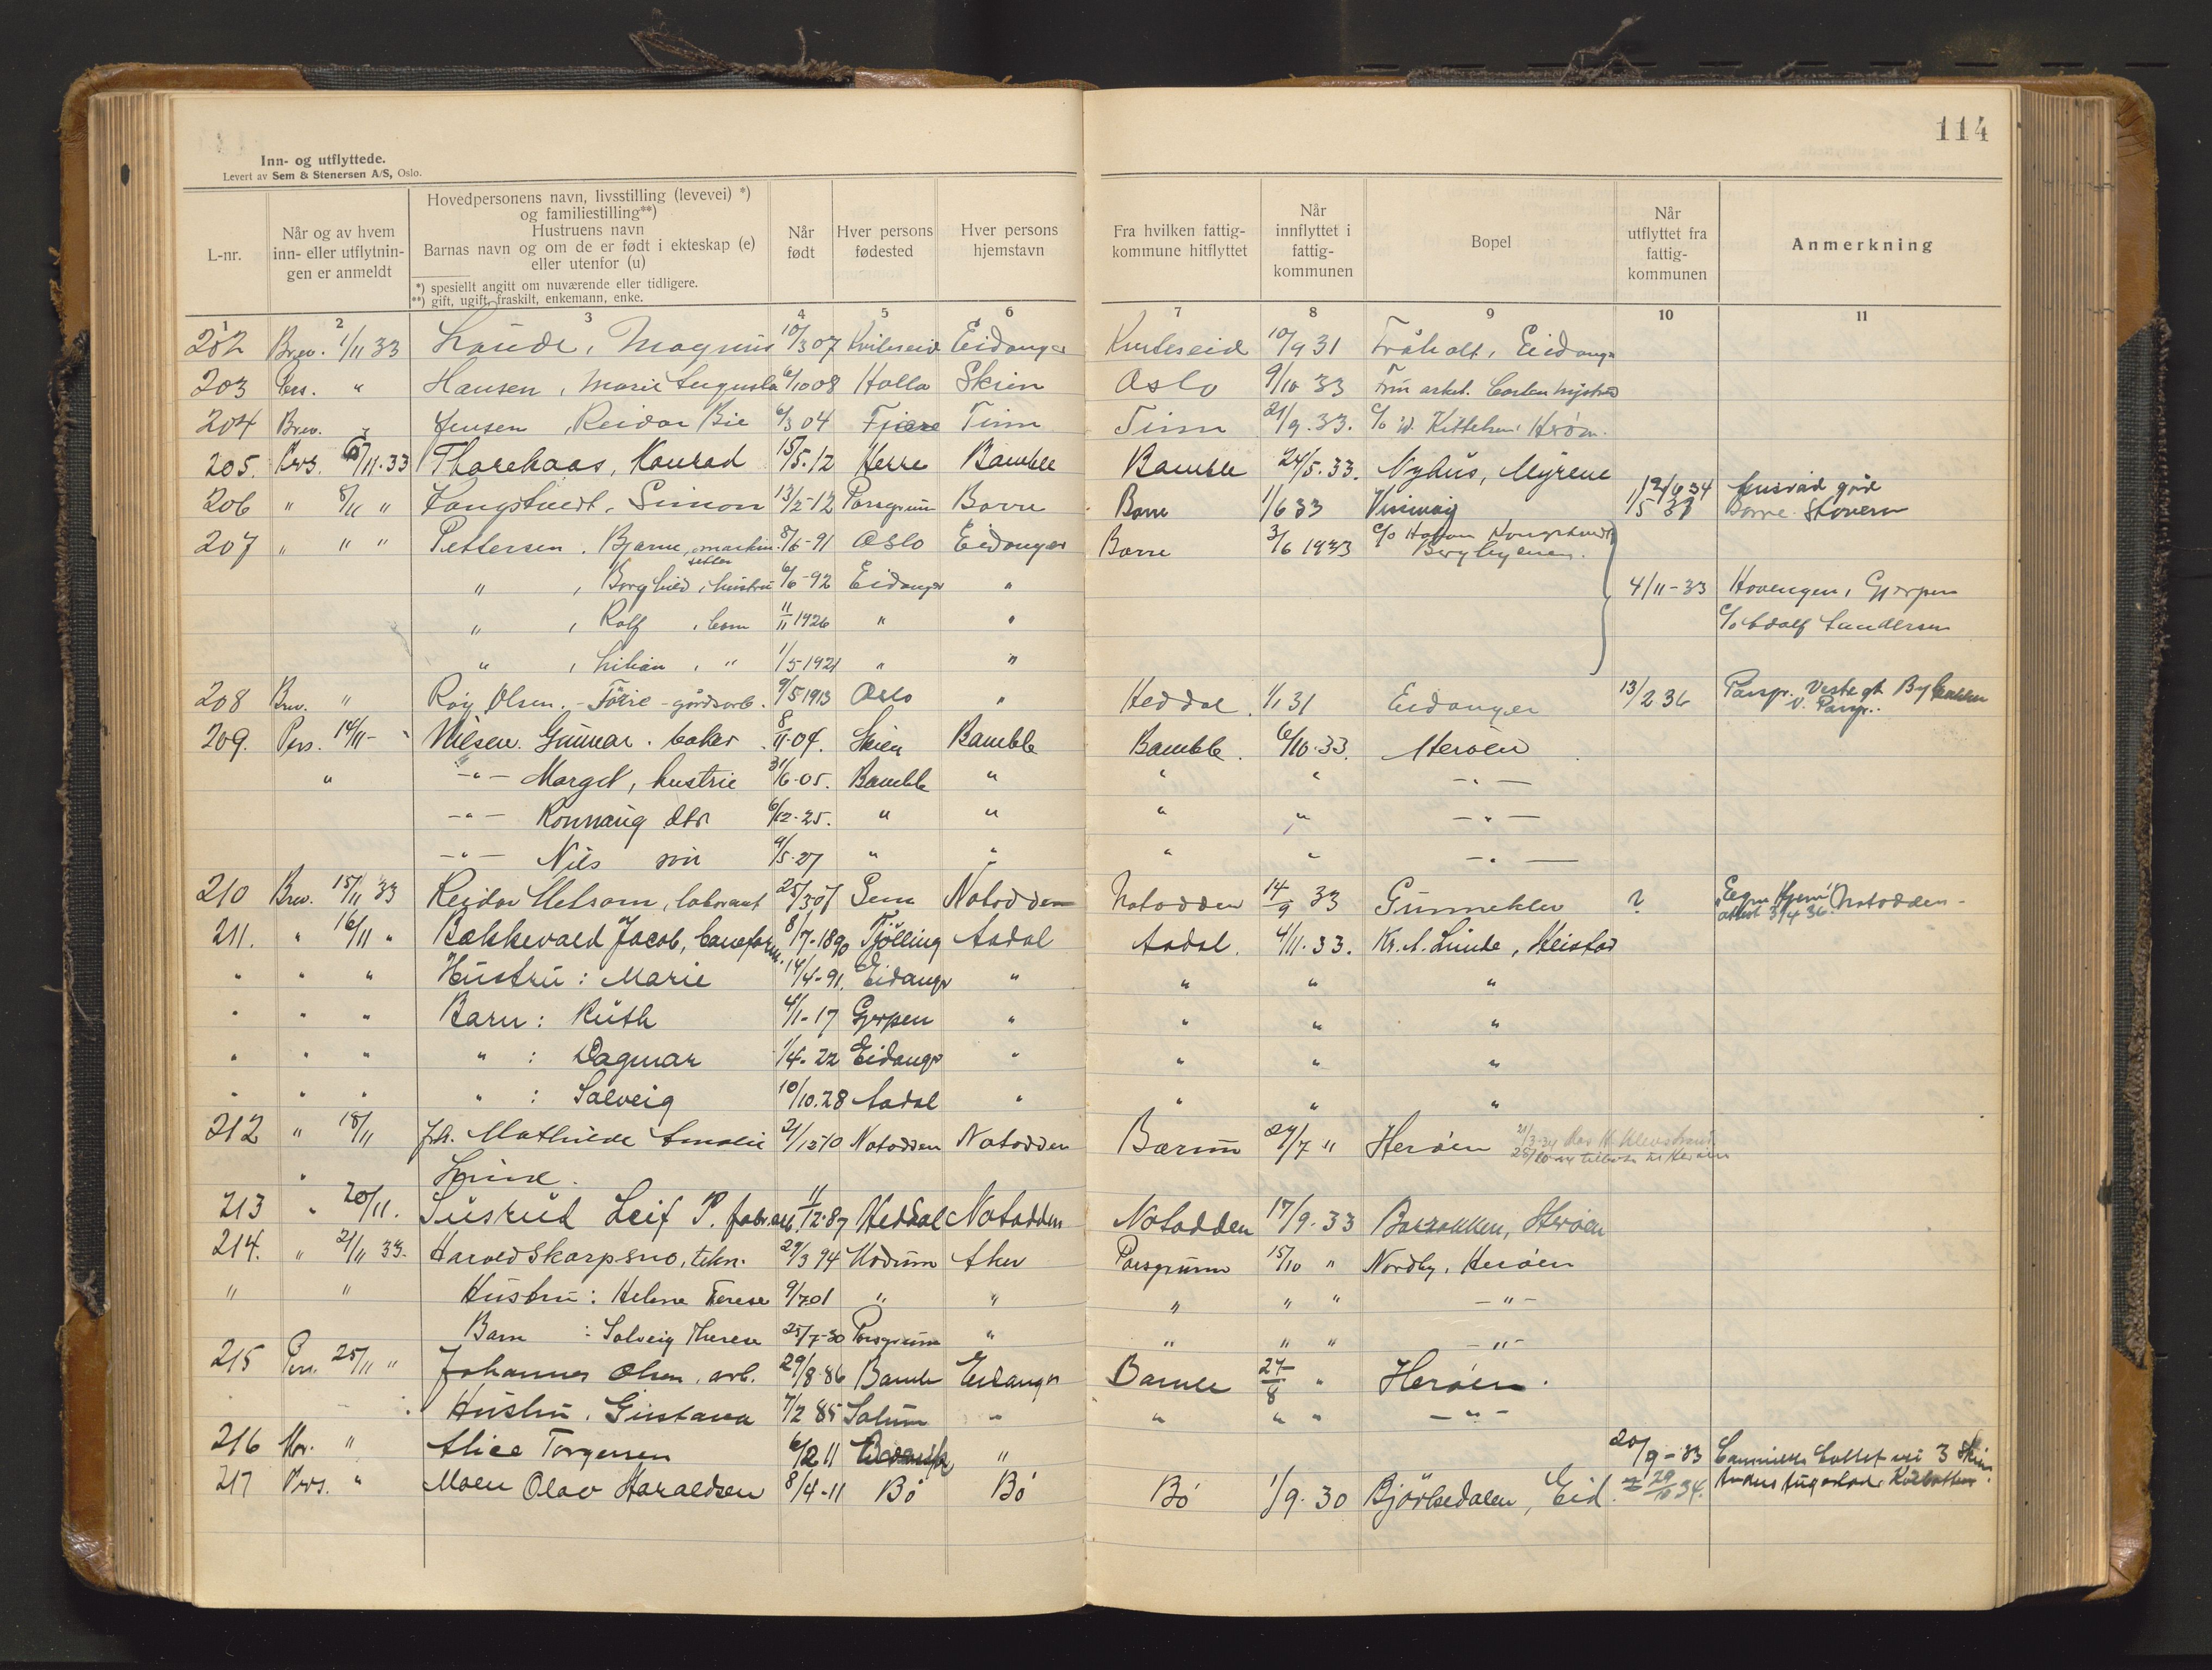 114
Inn- og utflyttede.
Levert av Sem & Stenersen A/S, Oslo.
L-nr.
Når og av hvem inn- eller utflytnin-gen er anmeldt
Hovedpersonens navn, livsstilling (levevei) *)
og familiestilling**)
Hustruens navn
Barnas navn og om de er født i ekteskap (e)
eller utenfor (u)
*) spesiellt angitt om nuværende eller tidligere.
**) gift, ugift, fraskilt, enkemann, enke.
Når født
Hver persons fødested
Hver persons hjemstavn
Fra hvilken fattig-kommune hitflyttet
Når innflyttet i fattig-kommunen
Bopel
Når utflyttet fra fattig-kommunen
Anmerkning
1 2 3 4 5 6 7 8 9 10 11
202 Brev. 1/11 33 Magnus 10/3 07 Kviteseid Eidanger Kviteseid 10/9 31 Tråholt, Eidanger
203 Pers. " Hansen, Marie Augusta 6/10 08 Holla Skien Oslo 9/10 33
204 Brev. " Jensen, Reidar Bie 6/3 04 Tinn Tinn 21/9.33. c/o Herøen
205. Pers. /11.33 Thorekaas, Konrad 15/5.12 Herre Bamble Bamble 24/5.33. Nyhus, Myrene
206 " 8/11 " Langstvedt, Simon 13/2-12 Porsgrunn Borre Borre 1/6 33 Borre
207 " " " Pettersen, Bjarne, 8/6-91 Oslo Eidanger Borre 3/6 1933 c/o
" , Borghild, hustru 6/6-92 Eidanger " 4/11-33 Hovengen, Gjerpen
" , Rolf, barn 11/11 1926 " " c/o
" , Lilian, " 1/5 1921 " "
208 Brev. " Roy Olsen. - gårdsarb. 9/5 1913 Oslo " Heddal 1/1 31 Eidanger 13/2 36 V. Porsgr.
209. Pers. 14/11 - " Nilsen. Gunnar. baker 8/11.04. Skien Bamble Bamble. 6/10.33. Herøen
" -"- Margit, hustru 31/6.05. Bamble " " " -"-
-"- Ronnaug dtr 6/12.25. " " " " -"-
-"- Nils søn 9/5.27 " " " " -"-
210 Brev. 15/11 33 Reidar Melsom, laborant 25/3 07 Sem Notodden Notodden 14/9 33 Gunneklev ? Notodden -
211. " 16/11 " Bakkevald Jacob, 8/7-1890 Tjölling Aadal Aadal. 4/11.33. Kr. A. Linde, Heistad
" " " Hustru: Marie 14/4-91. Eidanger " " " "
" " " Barn: Ruth 4/1-17 Gjerpen " " " "
" " " " : Dagmar 1/4-22 Eidanger " " " "
" " " " : Solveig 10/10.28 Aadal " " " "
212 " 18/11 frk. Mathilde Amalie 2/12 10 Notodden Notodden Bærum 24/7 " Herøen
213 " 20/11. Susrud Leif P. fabr.arb. 11/12-87 Heddal Notodden Notodden 17/9.33 Barakken, Herøen
214. " 21/11 33. Harald Skarpsno, tekn. 29/3 94 Modum Aker Porsgrunn 15/10 " Nordby, Herøen
" " Hustru: Helene Terese 9/7 01 " " " " " -"-
Barn : Solveig Therese 25/7-30 Porsgrunn " " " " -"-
215 Pers. 25/11 " Johannes Olsen, arb. 29/8 86 Bamble Eidanger Bamble 24/8 " Herøen.
Hustru, Gustava 7/2 85 Solum " " " " -"-
216 " Alice Torgersen 6/2 11 " 20/9-33 3 Skien.
217 Pers. " Moen Olav Haraldsen 8/4-11 Bö Bö Bö 1/9.30 Björkedalen, Eid. 29/10 34.